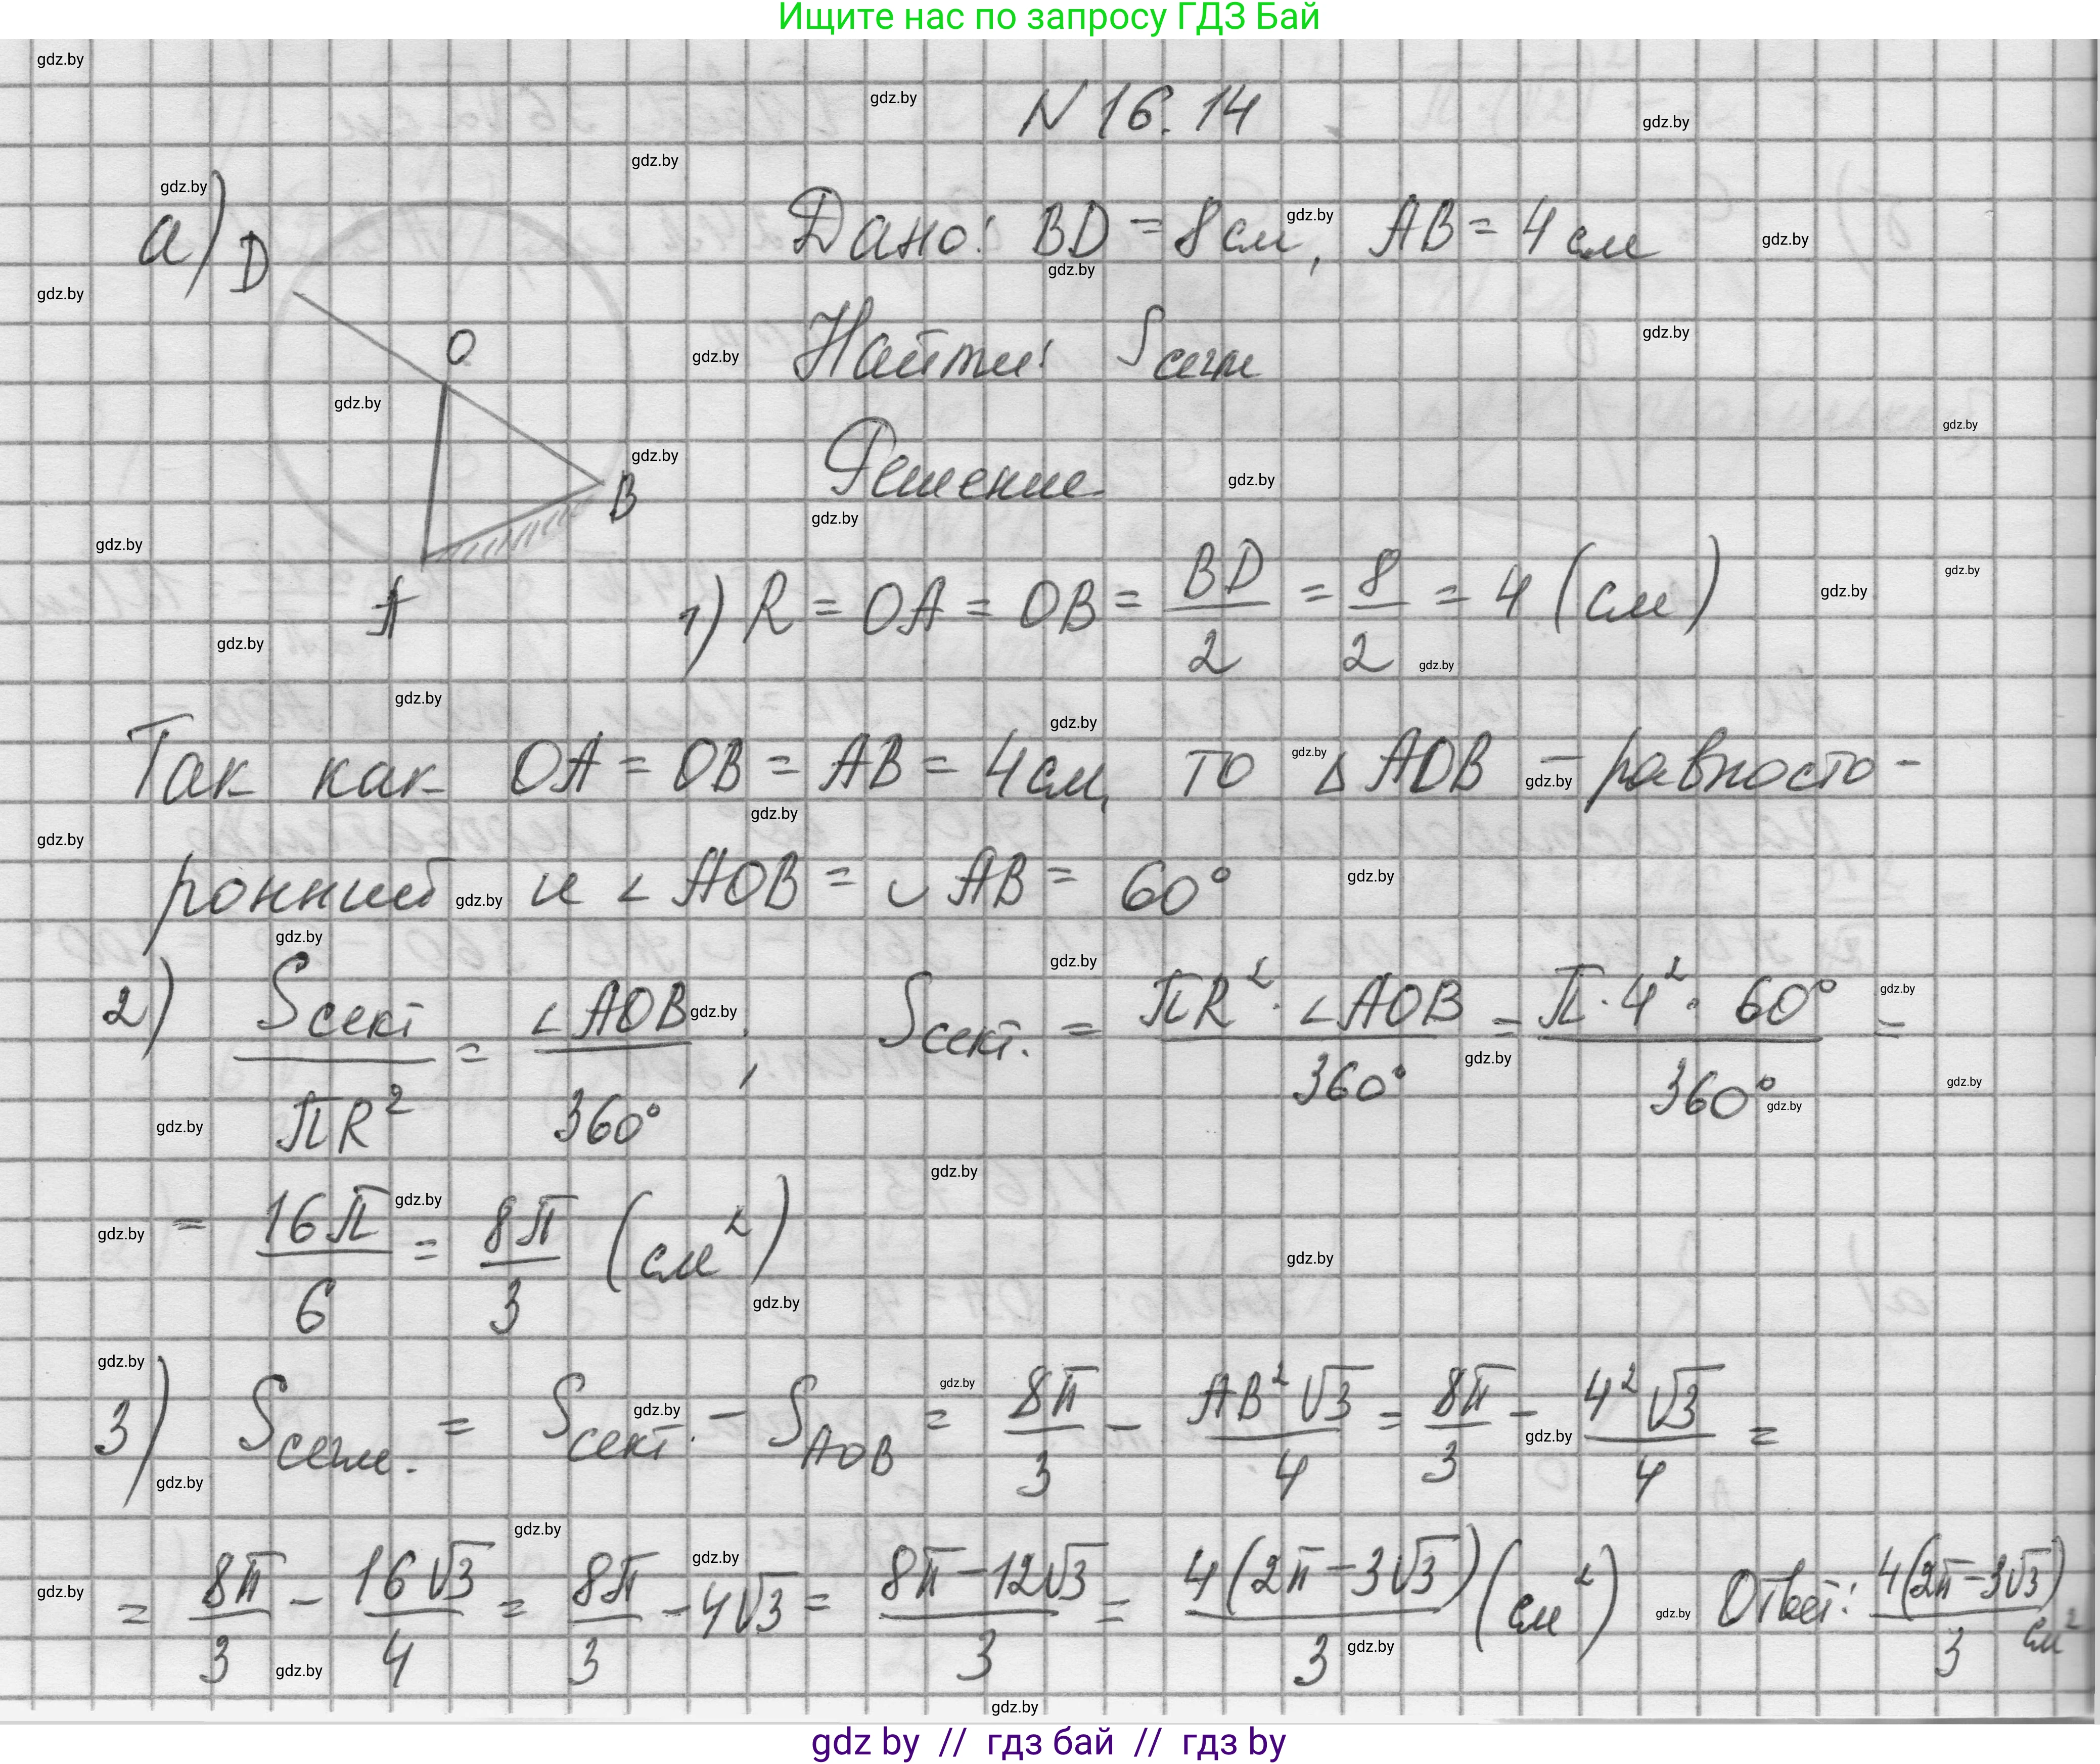 Ищите нас по запросу ГДЗ Бай
N 16.14
а)
D
O
B
A
Дано: BD = 8 см, AB = 4 см
Найти: Sсегм
Решение
1) R = OA = OB = BD/2 = 8/2 = 4 (см)
Так как OA = OB = AB = 4 см, то △ AOB – равносто-
ронний и ∠ AOB = ◡ AB = 60°
2) Sсект/πR² = ∠AOB/360° ; Sсект. = πR² · ∠AOB/360° = π · 4² · 60°/360° =
= 16π/6 = 8π/3 (см²)
3) Sсегм. = Sсект. – S AOB = 8π/3 – AB²√3/4 = 8π/3 – 4²√3/4 =
= 8π/3 – 16√3/4 = 8π/3 – 4√3 = 8π – 12√3/3 = 4(2π – 3√3)/3 (см²) Ответ: 4(2π – 3√3)/3 см²
gdz by // гдз бай // гдз by
gdz.by